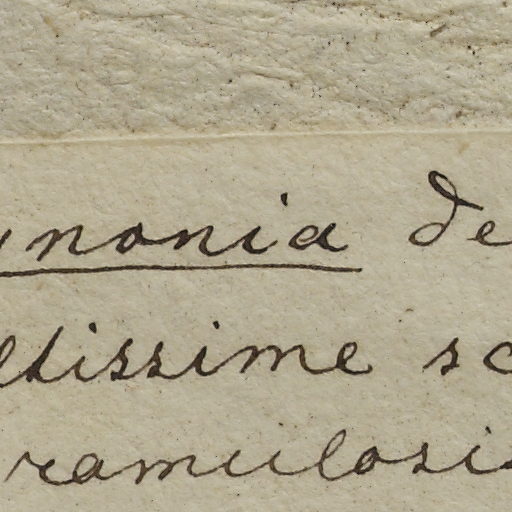 nonia de
tissime sc
ramulosis